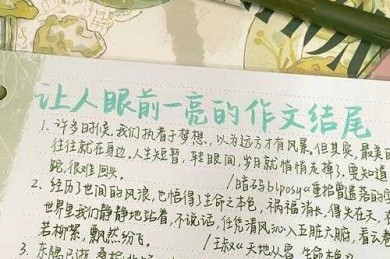 让人眼前一亮的作文结尾
1. 许多时候,我们执着于梦想,以为远方才有风景,但其实,最美
往往就在身边,人生短暂,转眼间,岁月就悄悄走掉了,要知道
路,很难回头。 /暗码blposy《重拾曾遗落的
2. 经历了世间的风浪,也悟得了生命之本色,祸福消长,得失在天,在
世界里我们静静地站着,不说话,任凭清风沁入五脏六腑,看云
若柳絮,飘然纷飞。 /王叔《天地从容 生命本色》
3. 东隅已逝